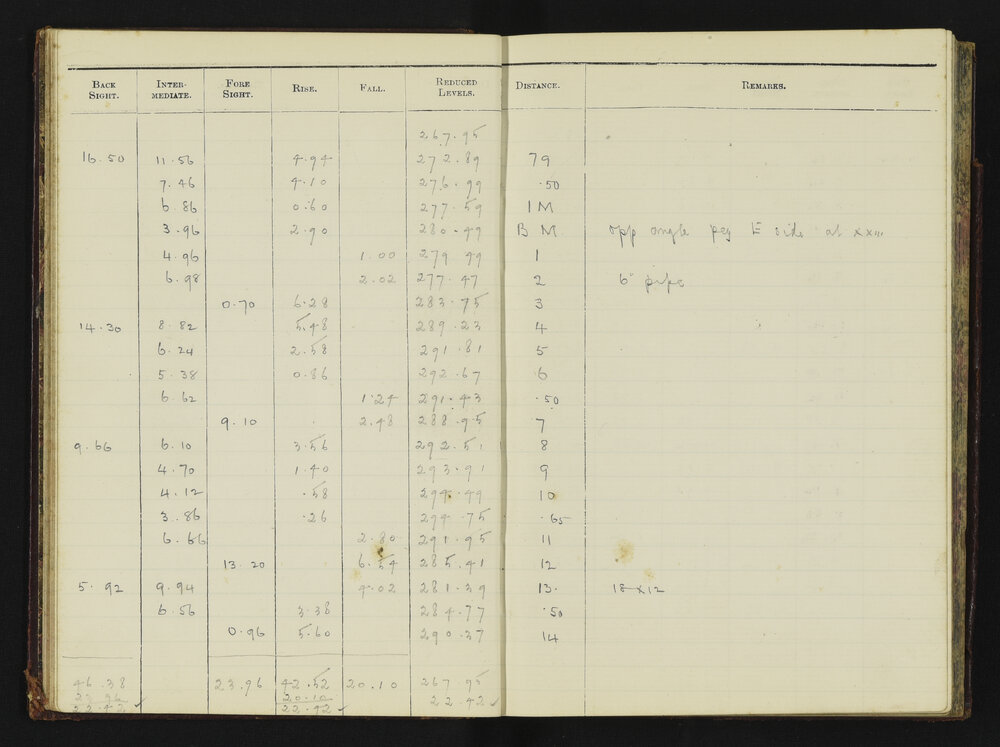 BACK SIGHT. INTER-MEDIATE. FORE SIGHT. RISE. FALL. REDUCED LEVELS. DISTANCE. REMARKS.
267.95
16.50 11.56 4.94 272.89 79
7.46 4.10 276.99 .50
6.86 0.60 277.59 1M
3.96 2.90 280.49 B M. opp angle peg E side at
4.96 1.00 279 99 1
6.98 2.02 277.47 2 6" pipe
0.70 6.28 283.75 3
14.30 8.82 5.48 289.23 4
6.24 2.58 291.81 5
5.38 0.86 292.67 6
6.62 1.24 291.43 .50
9.10 2.48 288.95 7
9.66 6.10 3.56 292.51 8
4.70 1.40 293.91 9
4.12 .58 294.49 10
3.86 .26 294.75 .65
6.66 2.80 291.95 11
13.20 6.54 285.41 12
5.92 9.94 4.02 281.39 13. 18x12
6.56 3.38 284.77 .50
0.96 5.60 290.37 14
46.38 23.96 42.52 20.10 267.95
23.96 20.10 22.42 ✓
22.42 ✓ 22.42 ✓